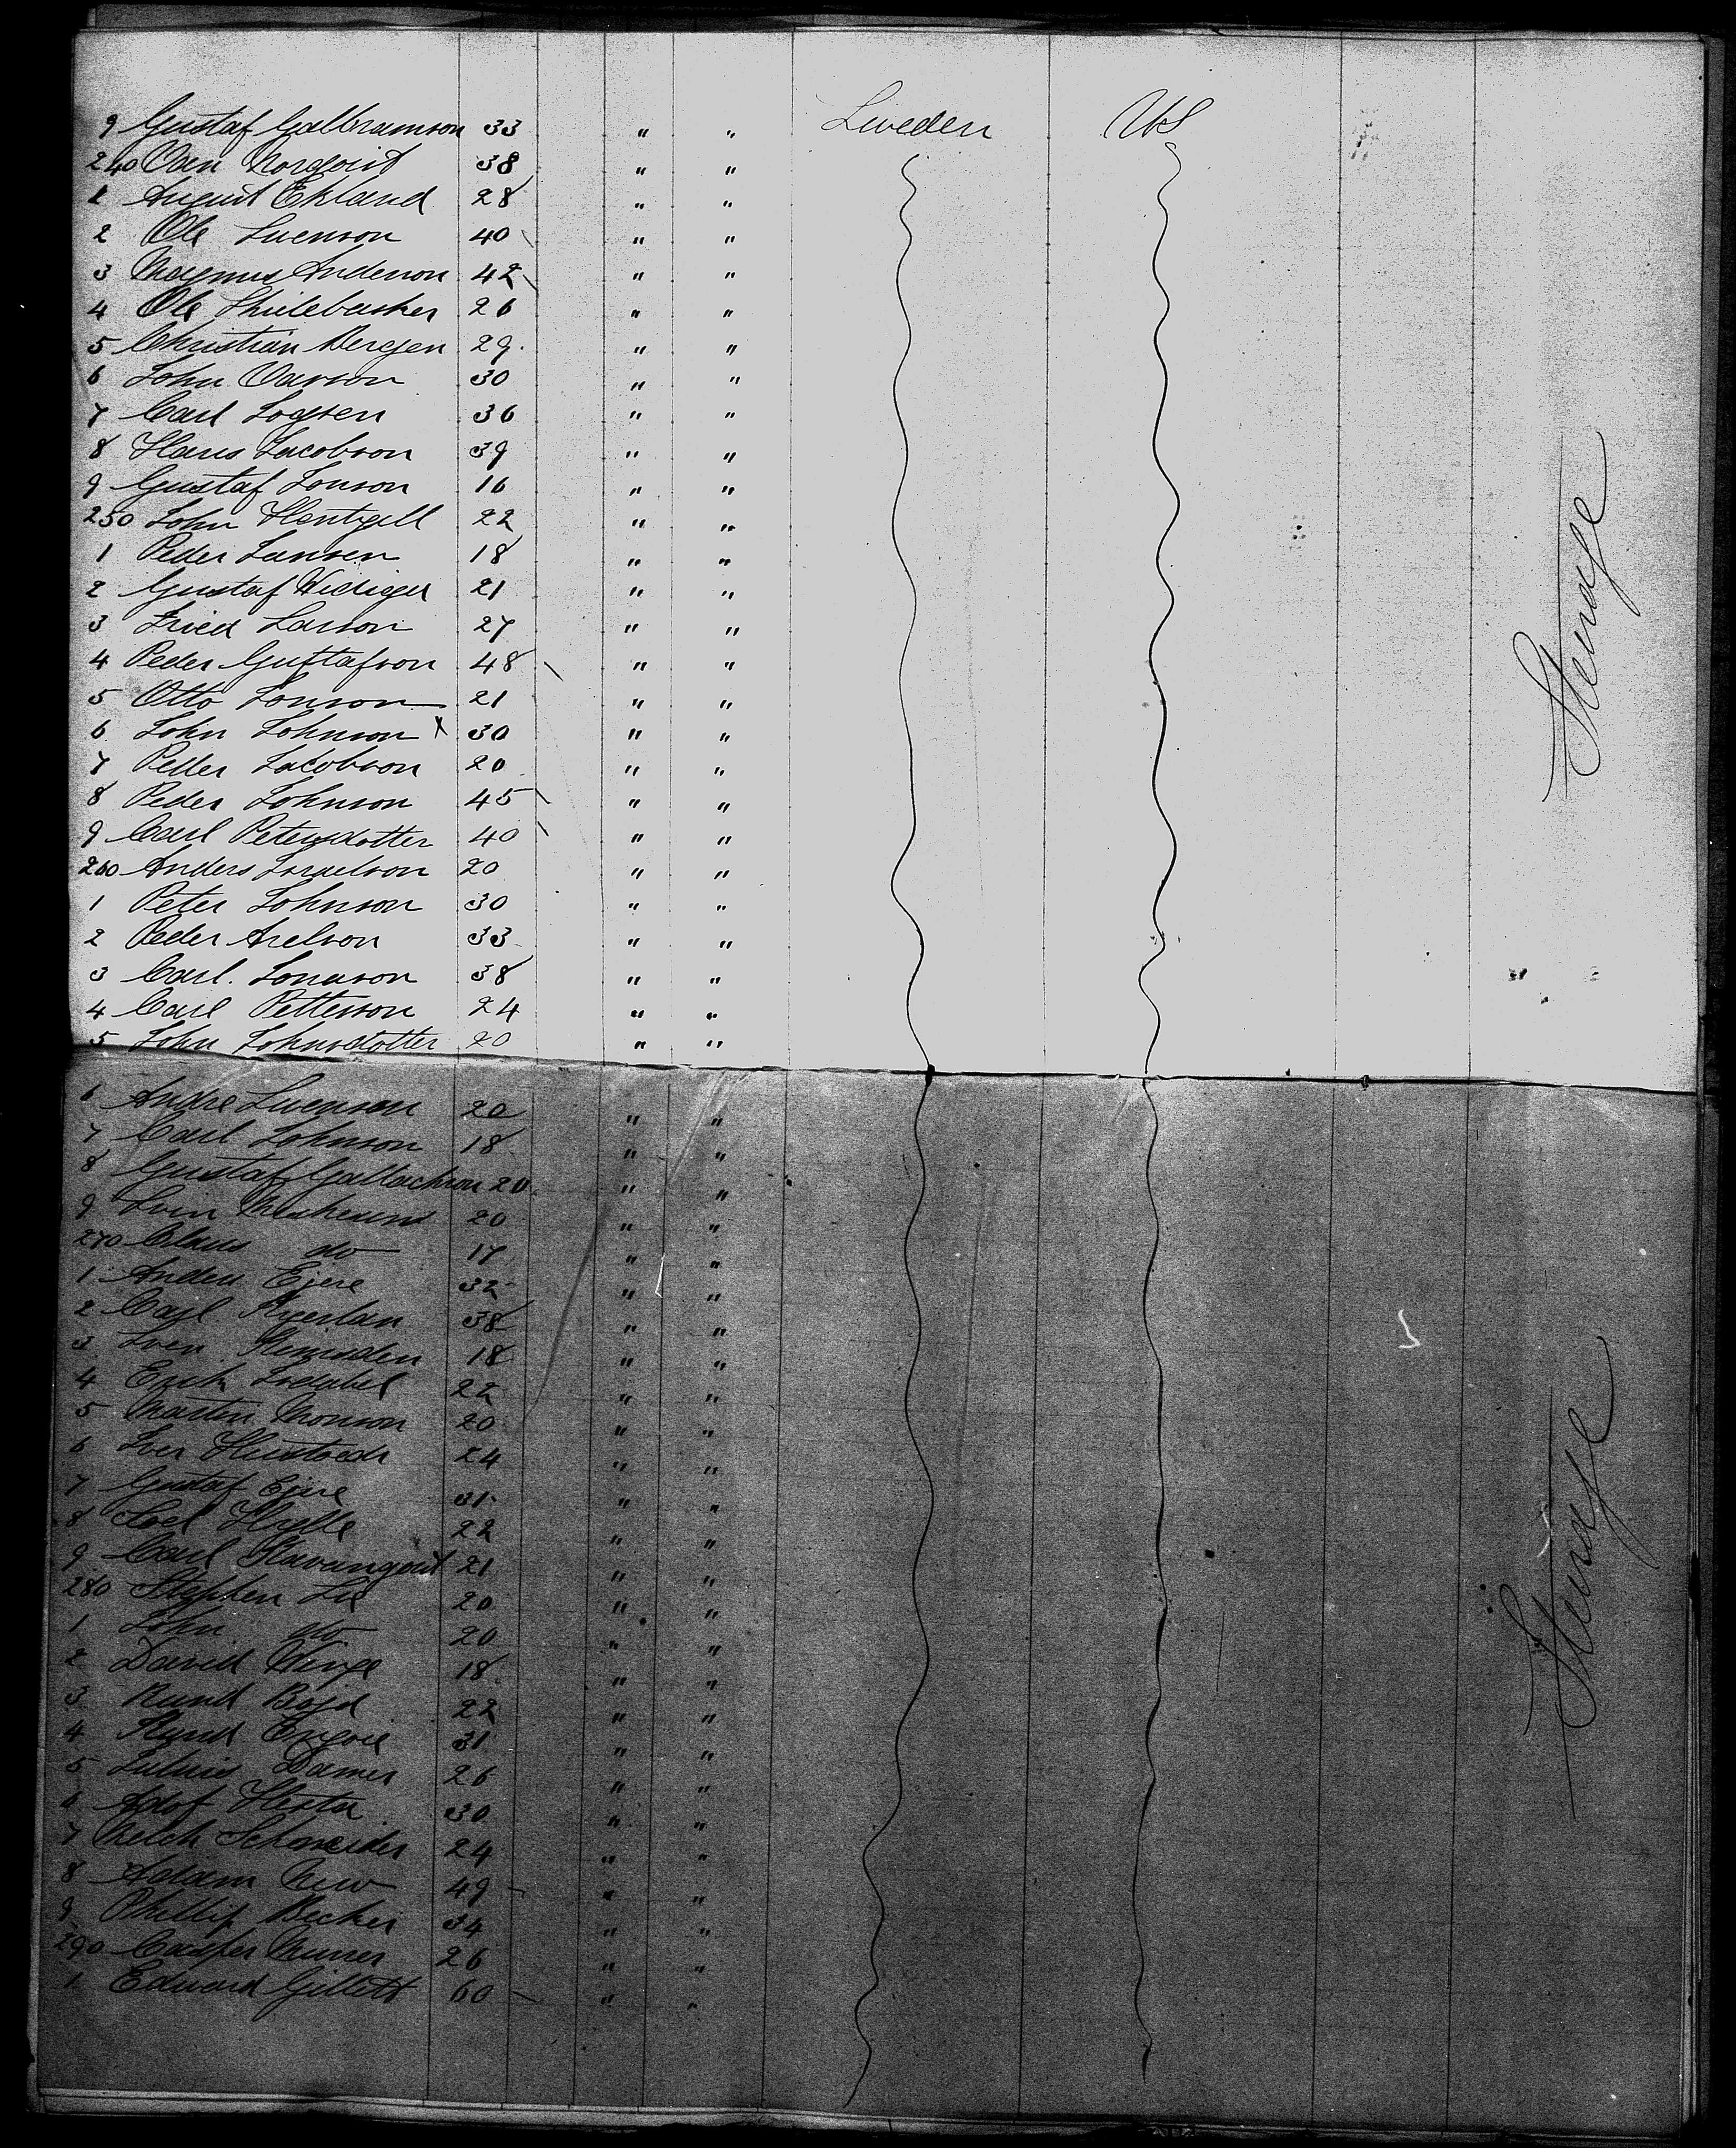 9 Gustaf Gullbramson 33 " " Sweden US
240 Norqvist 38 " "
1 August Eklund 28 " "
2 Ole Swenson 40 " "
3 Magnus Anderson 42 " "
4 Ole 26 " "
5 Christian Bergen 29 " "
6 John 30 " "
7 Carl 36 " "
8 Hans Jacobson 39 " "
9 Gustaf Jonson 16 " "
250 John 22 " "
1 Peder Jansen 18 " "
2 Gustaf 21 " "
3 Fried Larson 27 " "
4 Peder Gustafson 48 " "
5 Otto Jonson 21 " "
6 John Johnson x 30 " "
7 Petter Jacobson 20 " "
8 Peder Johnson 45 " "
9 Carl Petersdotter 40 " "
260 Anders Israelson 20 " "
1 Peter Johnson 30 " "
2 Peder Axelson 33 " "
3 Carl. Jonason 38 " "
4 Carl Petterson 24 " "
5 John Johnsdotter 20 " "
6 Andre Swenson 20 " "
7 Carl Johnson 18 " "
8 Gustaf 20 " "
9 20 " "
270 Claus do 17 " "
1 Anders Ejere 32 " "
2 Carl 38 " "
3 18 " "
4 Erik 22 " "
5 Martin Monson 20 " "
6 Iver 24 " "
7 Gustaf Ejere 31 " "
8 22 " "
9 Carl 21 " "
280 Stephen 20 " "
1 John do 20 " "
2 David 18 " "
3 22 " "
4 31 " "
5 Julius 26 " "
6 30 " "
7 Schneider 24 " "
8 Adam 49 " "
9 Phillip Becker 34 " "
290 Casper 26 " "
1 Edward Gillett 60 " "
Steerage
Steerage